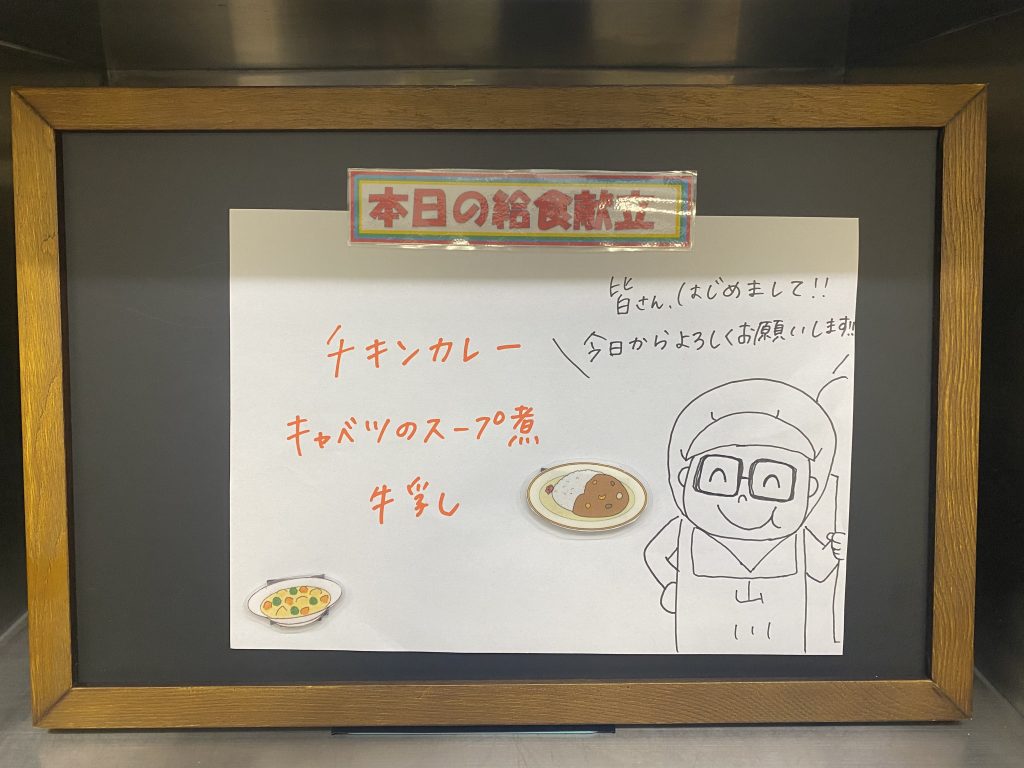 本日の給食献立
皆さん、はじめまして!!
今日からよろしくお願いします!!
チキンカレー
キャベツのスープ煮
牛乳し
山川